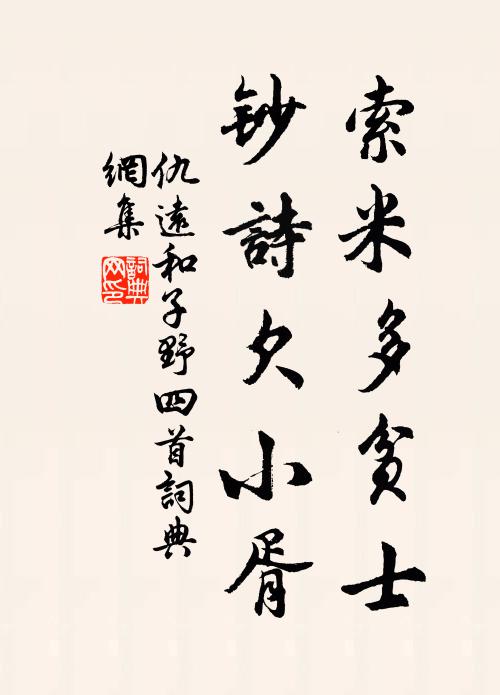 索米多貧士
鈔詩欠小胥
仇遠和子野四首詞典
網集
詞典
網印